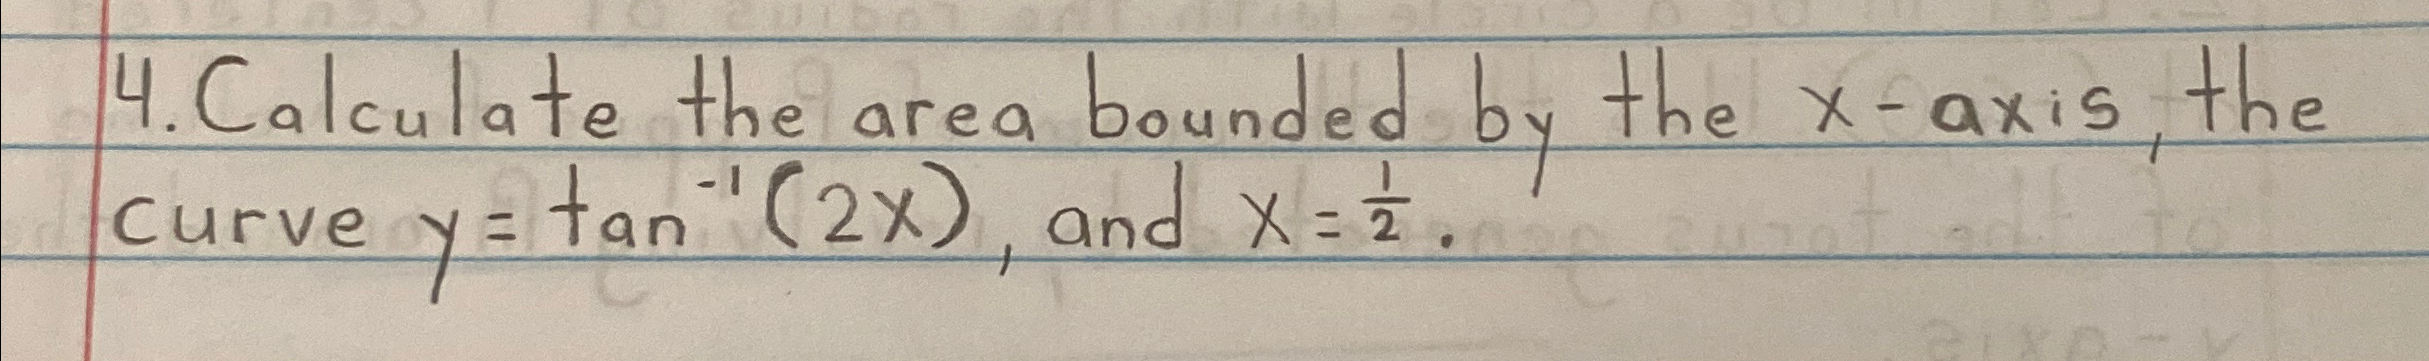 4. Calculate the area bounded by the x-axis, the
curve y = tan⁻¹(2x), and x = 1/2.